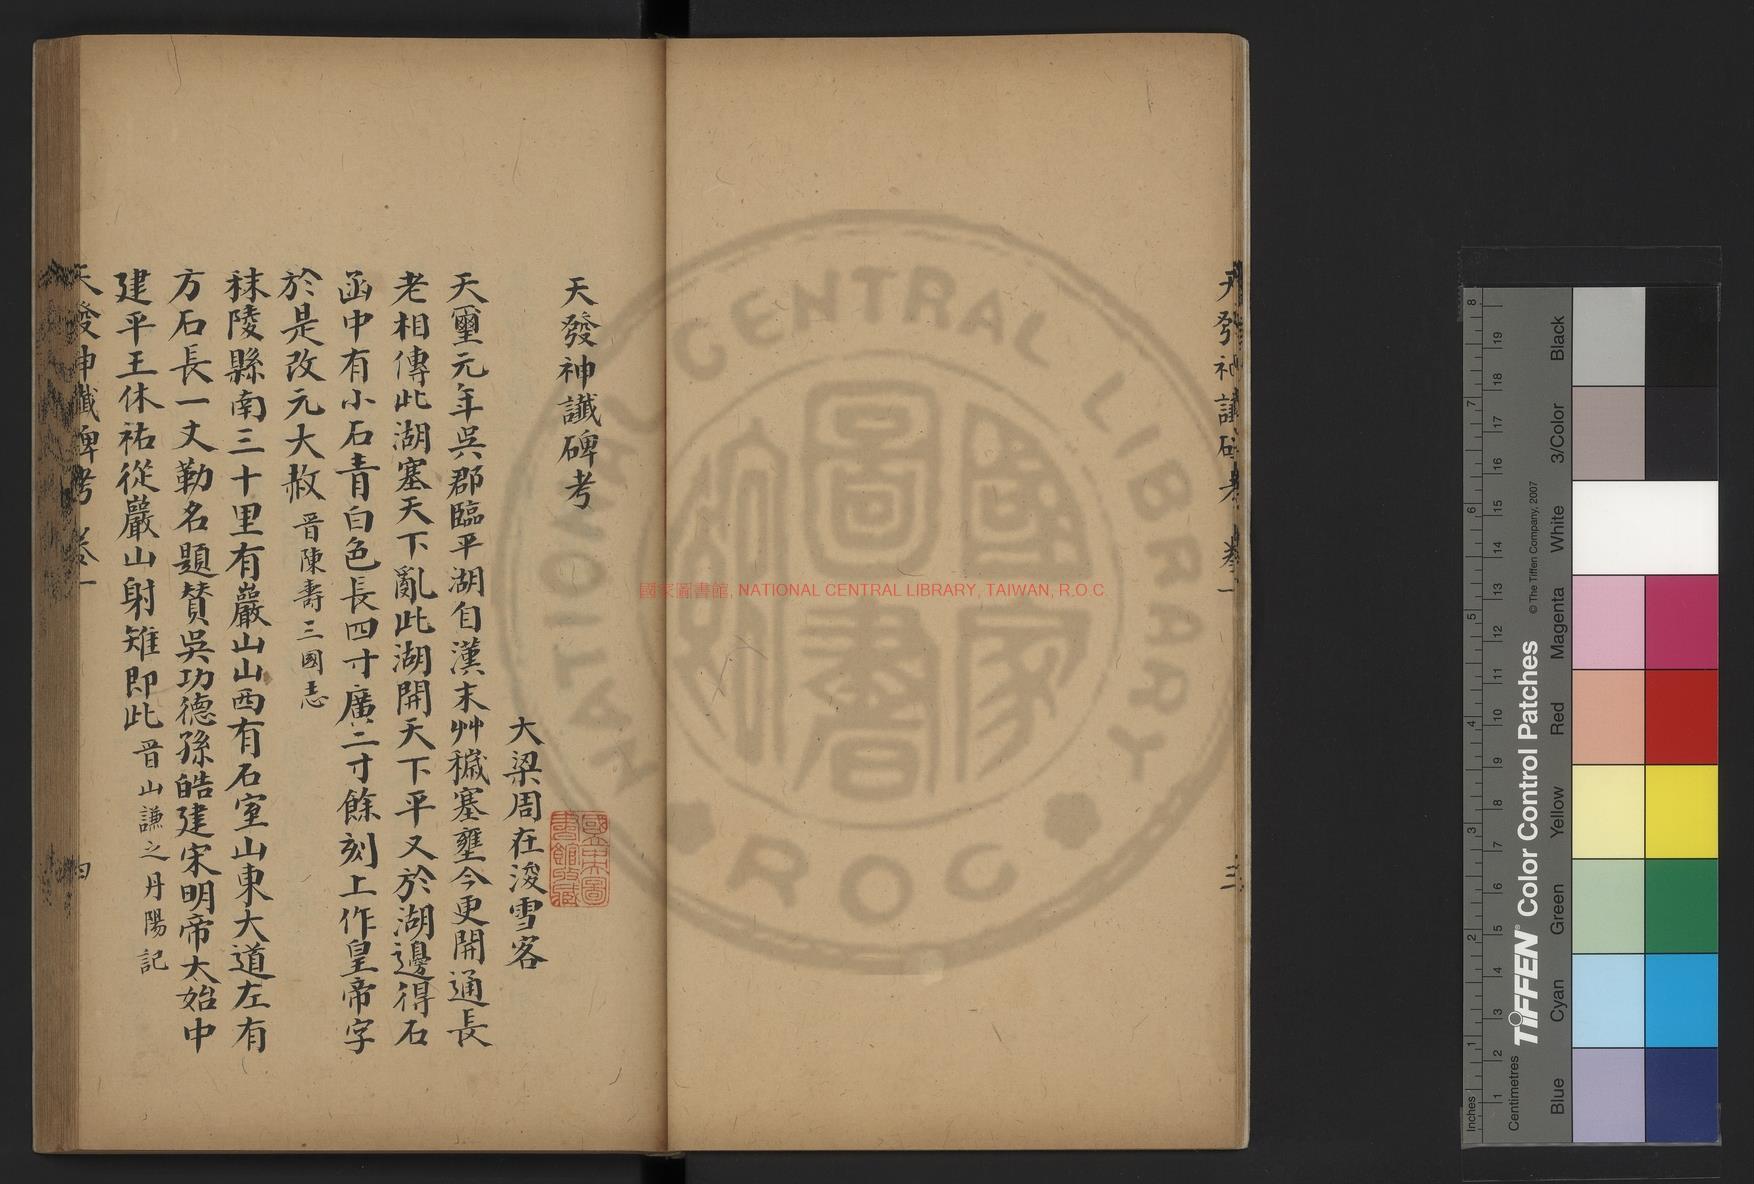 天發神讖碑考
大梁周在浚雪客
天璽元年吳郡臨平湖自漢末艸穢塞壅今更開通長
老相傳此湖塞天下亂此湖開天下平又於湖邊得石
函中有小石青白色長四寸廣二寸餘刻上作皇帝字
於是改元大赦晉陳壽三國志
秣陵縣南三十里有巖山山西有石室山東大道左有
方石長一丈勒名題贊吳功德孫皓建宋明帝太始中
建平王休祐從巖山射雉即此晉山謙之丹陽記
天發神讖碑考 卷一
四
天發神讖碑考 卷一
三
國家圖書館, NATIONAL CENTRAL LIBRARY, TAIWAN, R.O.C.
NATIONAL CENTRAL LIBRARY
R O C
國家圖書館
國立中央圖書館收藏
TIFFEN® Color Control Patches
© The Tiffen Company, 2007
Inches
1 2 3 4 5 6 7 8
Centimetres
1 2 3 4 5 6 7 8 9 10 11 12 13 14 15 16 17 18 19
Blue
Cyan
Green
Yellow
Red
Magenta
White
3/Color
Black